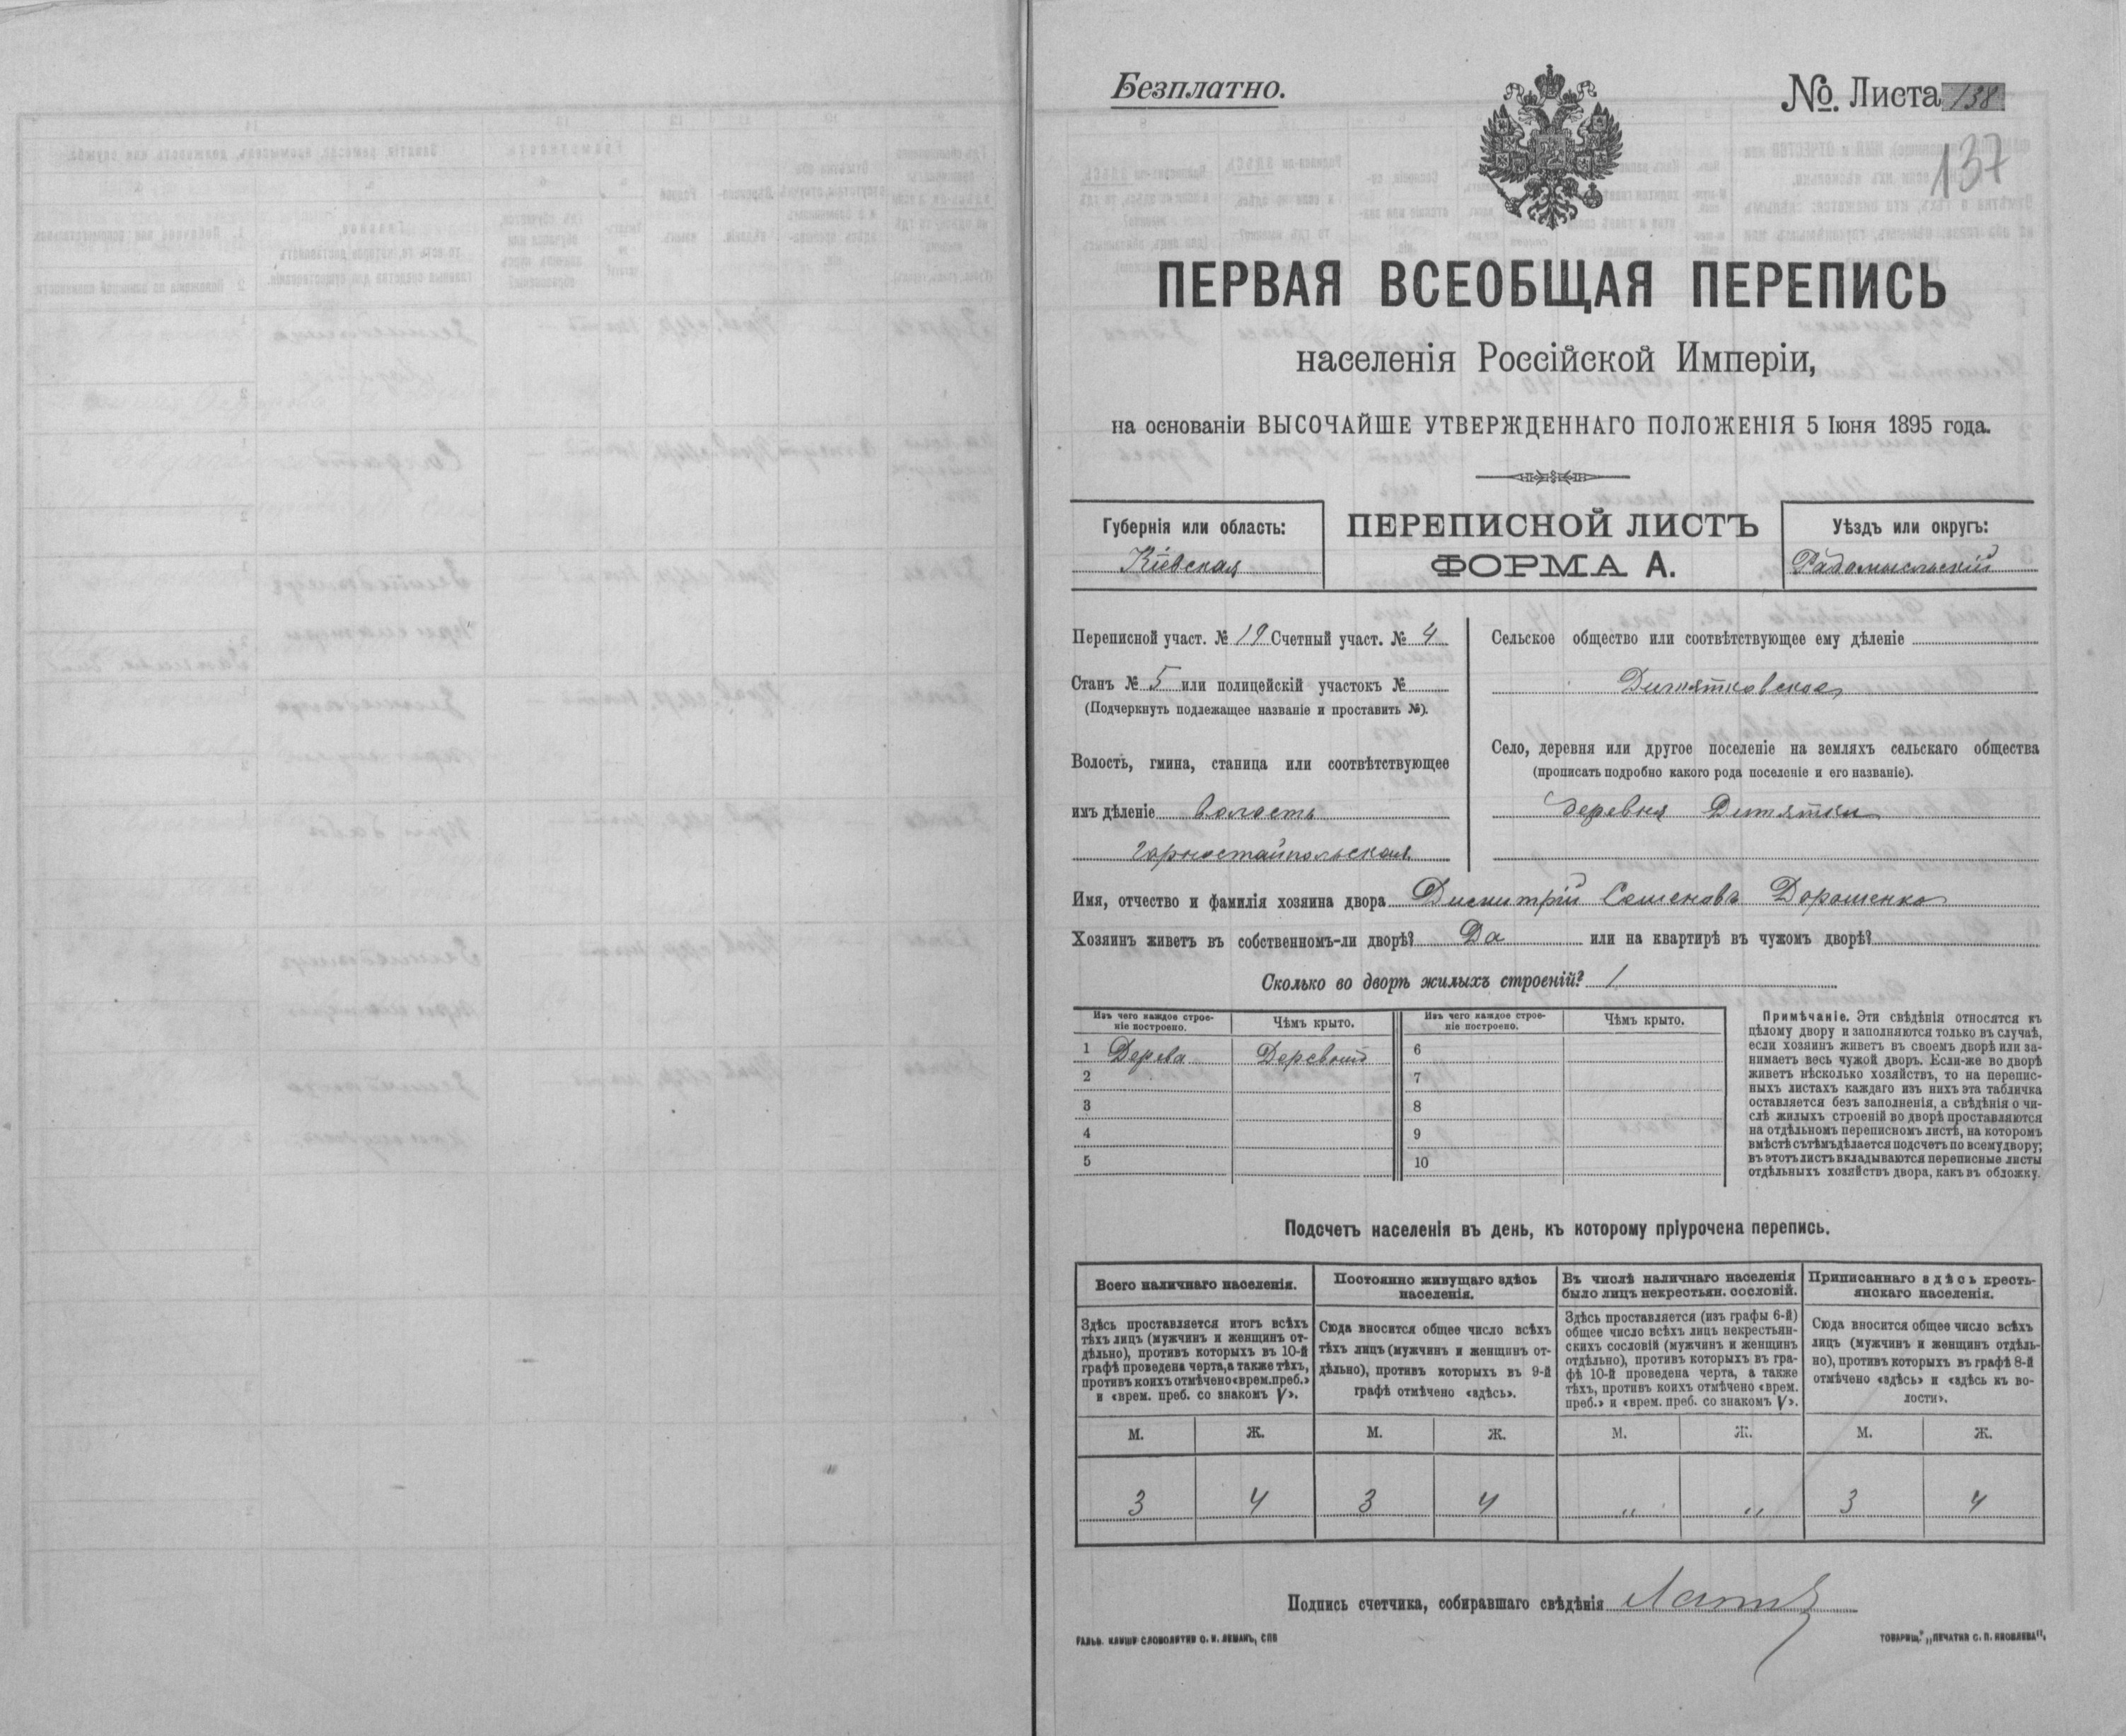 Безплатно.
№ Листа 138
137
ПЕРВАЯ ВСЕОБЩАЯ ПЕРЕПИСЬ
населенія Россійской Имперіи,
на основаніи ВЫСОЧАЙШЕ УТВЕРЖДЕННАГО ПОЛОЖЕНІЯ 5 Іюня 1895 года.
Губернія или область:
Кіевская
ПЕРЕПИСНОЙ ЛИСТЪ
ФОРМА А.
Уѣздъ или округъ:
Радомысльскій
Переписной участ. № 19 Счетный участ. № 4
Станъ № 5 или полицейскій участокъ №
(Подчеркнуть подлежащее названіе и проставить №).
Волость, гмина, станица или соотвѣтствующее
имъ дѣленіе волость
горностайпольская
Сельское общество или соотвѣтствующее ему дѣленіе
Дитятковское
Село, деревня или другое поселеніе на земляхъ сельскаго общества
(прописать подробно какого рода поселеніе и его названіе).
деревня Дитятки
Имя, отчество и фамилія хозяина двора Димитрій Семеновъ Дорошенко
Хозяинъ живетъ въ собственномъ-ли дворѣ? Да или на квартирѣ въ чужомъ дворѣ?
Сколько во дворѣ жилыхъ строеній? 1
Изъ чего каждое строе-
ніе построено.
Чѣмъ крыто.
Изъ чего каждое строе-
ніе построено.
Чѣмъ крыто.
1 Дерева Деревомъ 6
2 7
3 8
4 9
5 10
Примѣчаніе. Эти свѣдѣнія относятся къ
цѣлому двору и заполняются только въ случаѣ,
если хозяинъ живетъ въ своемъ дворѣ или за-
нимаетъ весь чужой дворъ. Если-же во дворѣ
живетъ нѣсколько хозяйствъ, то на перепис-
ныхъ листахъ каждаго изъ нихъ эта табличка
оставляется безъ заполненія, а свѣдѣнія о чи-
слѣ жилыхъ строеній во дворѣ проставляются
на отдѣльномъ переписномъ листѣ, на которомъ
вмѣстѣ съ тѣмъ дѣлается подсчетъ по всему двору;
въ этотъ листъ вкладываются переписные листы
отдѣльныхъ хозяйствъ двора, какъ въ обложку.
Подсчетъ населенія въ день, къ которому пріурочена перепись.
Всего наличнаго населенія.
Здѣсь проставляется итогъ всѣхъ
тѣхъ лицъ (мужчинъ и женщинъ от-
дѣльно), противъ которыхъ въ 10-й
графѣ проведена черта, а также тѣхъ,
противъ коихъ отмѣчено «врем. преб.»
и «врем. преб. со знакомъ V».
Постоянно живущаго здѣсь
населенія.
Сюда вносится общее число всѣхъ
тѣхъ лицъ (мужчинъ и женщинъ от-
дѣльно), противъ которыхъ въ 9-й
графѣ отмѣчено «здѣсь».
Въ числѣ наличнаго населенія
было лицъ некрестьян. сословій.
Здѣсь проставляется (изъ графы 6-й)
общее число всѣхъ лицъ некрестьян-
скихъ сословій (мужчинъ и женщинъ
отдѣльно), противъ которыхъ въ гра-
фѣ 10-й проведена черта, а также
тѣхъ, противъ коихъ отмѣчено «врем.
преб.» и «врем. преб. со знакомъ V».
Приписаннаго здѣсь кресть-
янскаго населенія.
Сюда вносится общее число всѣхъ
лицъ (мужчинъ и женщинъ отдѣль-
но), противъ которыхъ въ графѣ 8-й
отмѣчено «здѣсь» и «здѣсь къ во-
лости».
М. Ж. М. Ж. М. Ж. М. Ж.
3 4 3 4 „ „ 3 4
Подпись счетчика, собиравшаго свѣдѣнія
ГАЛЬВ. КЛИШЕ СЛОВОЛИТНИ О. И. ЛЕМАНЪ, СПБ
ТОВАРИЩ. „ПЕЧАТНЯ С. П. ЯКОВЛЕВА".